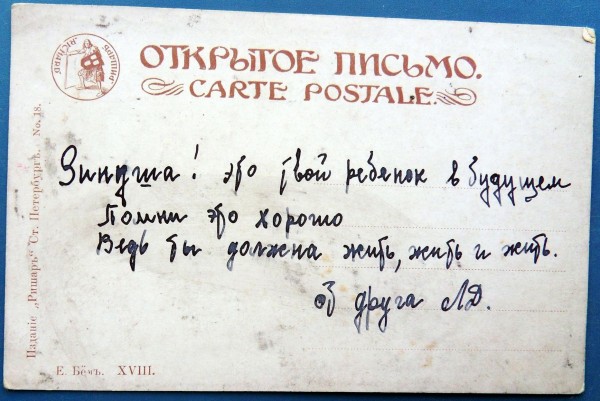 ОТКРЫТОЕ ПИСЬМО.
CARTE POSTALE.
Зинуша! это твой ребенок в будущем
Помни это хорошо
Ведь ты должна жить, жить и жить.
от друга Л.Д.
Изданіе „Ришаръ“ Ст. Петербургъ. No. 18.
Е. Бёмъ. XVIII.